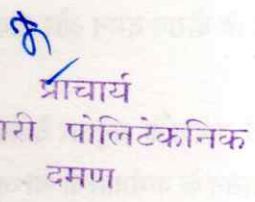 प्राचार्य
ारी पोलिटेकनिक
दमण